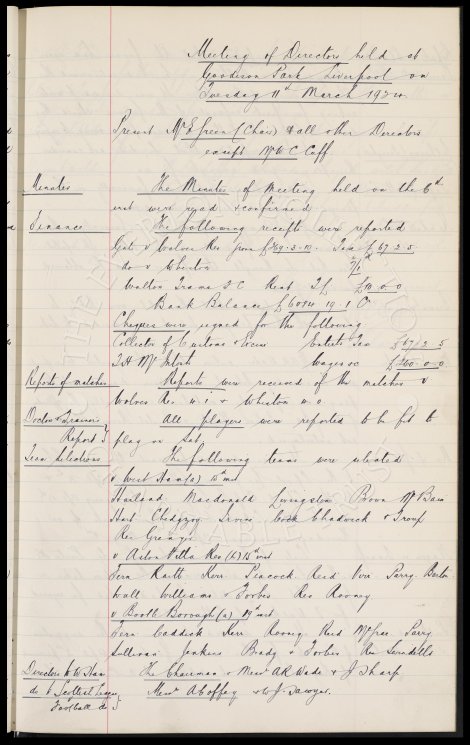 Meeting of Directors held at
Goodison Park Liverpool on
Tuesday 11th March 1924.
Present Mr E Green (Chair) & all other Directors
except Mr W C Cuff
Minutes The Minutes of Meeting held on the 6th
inst were read & confirmed
Finance The following receipts were reported
Gate v Wolves Res £269.3.10. Tax £67.2.5
do v Whiston
Walton Lane S C Rent £10.0.0
Bank Balance £6084 19.1 C
Cheques were signed for the following
Collector of Customs & Excise Entertts Tax £67 2 5
T H McIntosh Wages &c £260.0.0
Reports of matches Reports were received of the matches v
Wolves Res & Whiston
Doctor & Trainers Report All players were reported to be fit to
play on Sat.
Team Selections The following teams were selected
v West Ham (a) 15th inst
Harland Macdonald Livingstone Brown McBain
Hart Chedgzoy Irvine Cock Chadwick & Troup
Res Grenyer
v Aston Villa Res (h) 15th inst
Fern Raitt Kerr Peacock Reid Virr Parry
Wall Williams Forbes Res Rooney
v Bootle Borough (a) 19th inst
Fern Caddick Kerr Rooney Reid Parry
Sullivan Jenkins Brady & Forbes Res
Directors to W Ham The Chairman & Messrs A R Wade & J Sharp
do to Scottish League Football do Messrs A Coffey & W J Sawyer.